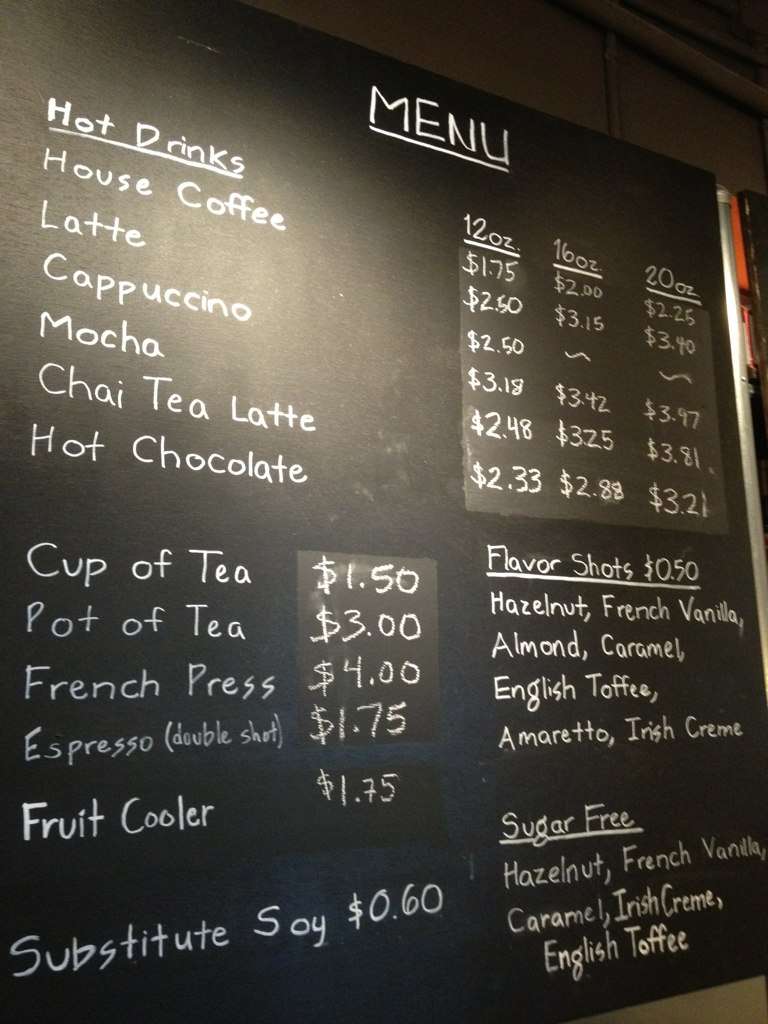 MENU
Hot Drinks 12oz. 16oz. 20oz
House Coffee $1.75 $2.00 $2.25
Latte $2.50 $3.15 $3.40
Cappuccino $2.50 ~ ~
Mocha $3.18 $3.42 $3.97
Chai Tea Latte $2.48 $3.25 $3.81
Hot Chocolate $2.33 $2.88 $3.21
Cup of Tea $1.50
Pot of Tea $3.00
French Press $4.00
Espresso (double shot) $1.75
Fruit Cooler $1.75
Substitute Soy $0.60
Flavor Shots $0.50
Hazelnut, French Vanilla,
Almond, Caramel,
English Toffee,
Amaretto, Irish Creme
Sugar Free
Hazelnut, French Vanilla,
Caramel, Irish Creme,
English Toffee